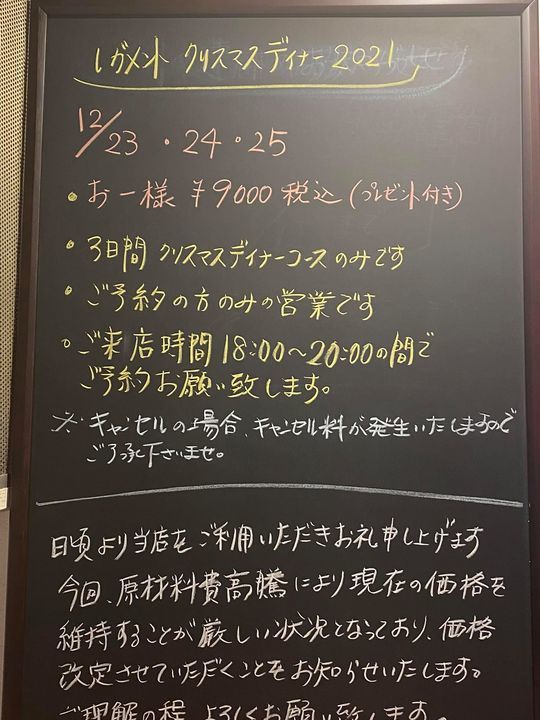 レガメント クリスマスディナー 2021
12/23・24・25
・お一様 ¥9000 税込 (プレゼント付き)
・3日間 クリスマスディナーコースのみです
・ご予約の方のみの営業です
・ご来店時間 18:00〜20:00の間で
ご予約お願い致します。
※キャンセルの場合、キャンセル料が発生いたしますので
ご了承下さいませ。
日頃より当店をご利用いただきお礼申し上げます
今回、原材料費高騰により現在の価格を
維持することが厳しい状況となっており、価格
改定させていただくことをお知らせいたします。
ご理解の程 よろしくお願い致します。